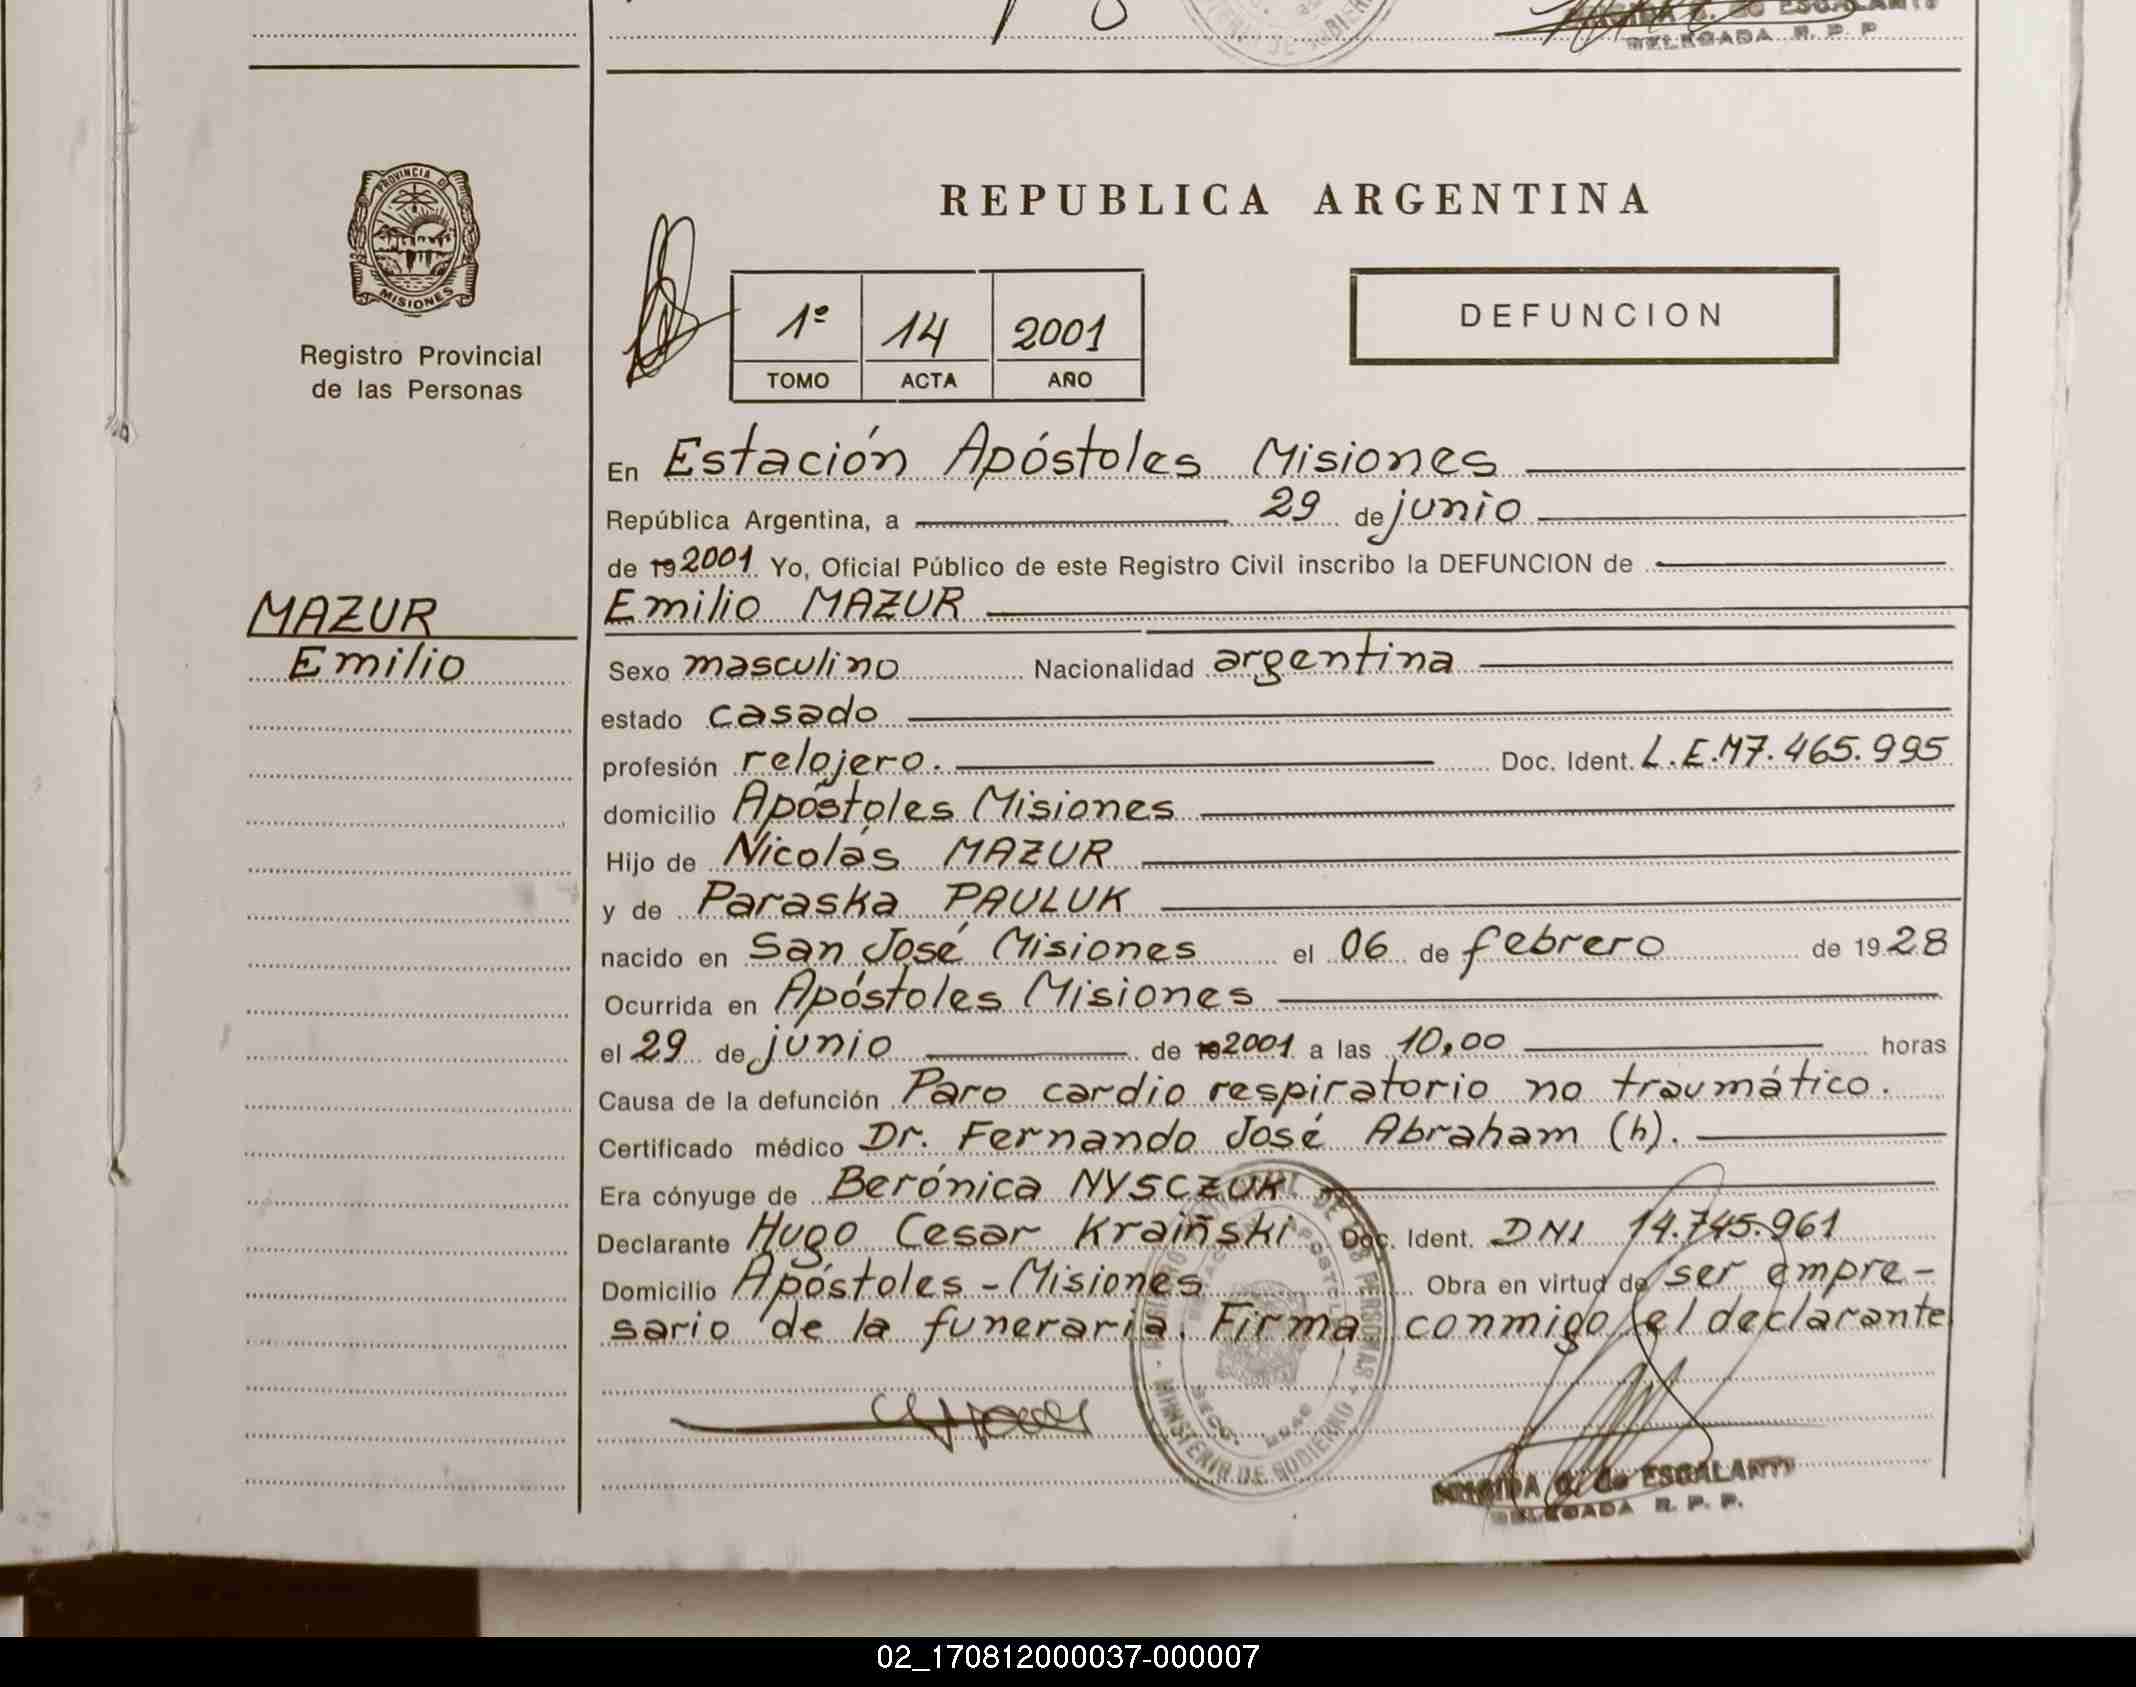 DELEGADA R. P. P
REPUBLICA ARGENTINA
PROVINCIA DE
MISIONES
Registro Provincial
de las Personas
1º 14 2001
TOMO ACTA AÑO
DEFUNCION
En Estación Apóstoles Misiones
República Argentina, a 29 de junio
de 19 2001. Yo, Oficial Público de este Registro Civil inscribo la DEFUNCION de
MAZUR
Emilio
Emilio MAZUR
Sexo masculino Nacionalidad argentina
estado casado
profesión relojero. Doc. Ident. L.E.M7.465.995
domicilio Apóstoles Misiones
Hijo de Nicolás MAZUR
y de Paraska PAULUK
nacido en San José Misiones el 06 de febrero de 1928
Ocurrida en Apóstoles Misiones
el 29 de junio de 19 2001 a las 10,00 horas
Causa de la defunción Paro cardio respiratorio no traumático.
Certificado médico Dr. Fernando José Abraham (h).
Era cónyuge de Berónica NYSCZUK
Declarante Hugo Cesar Kraiñski Doc. Ident. DNI 14.745.961
Domicilio Apóstoles - Misiones Obra en virtud de ser empre-
sario de la funeraria. Firma conmigo el declarante
MINISTERIO DE GOBIERNO
C. de ESCALANTE
DELEGADA R. P. P.
02_170812000037-000007